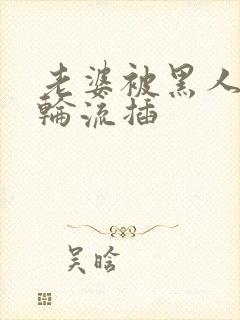 老婆被黑人
輪流插
吴晗